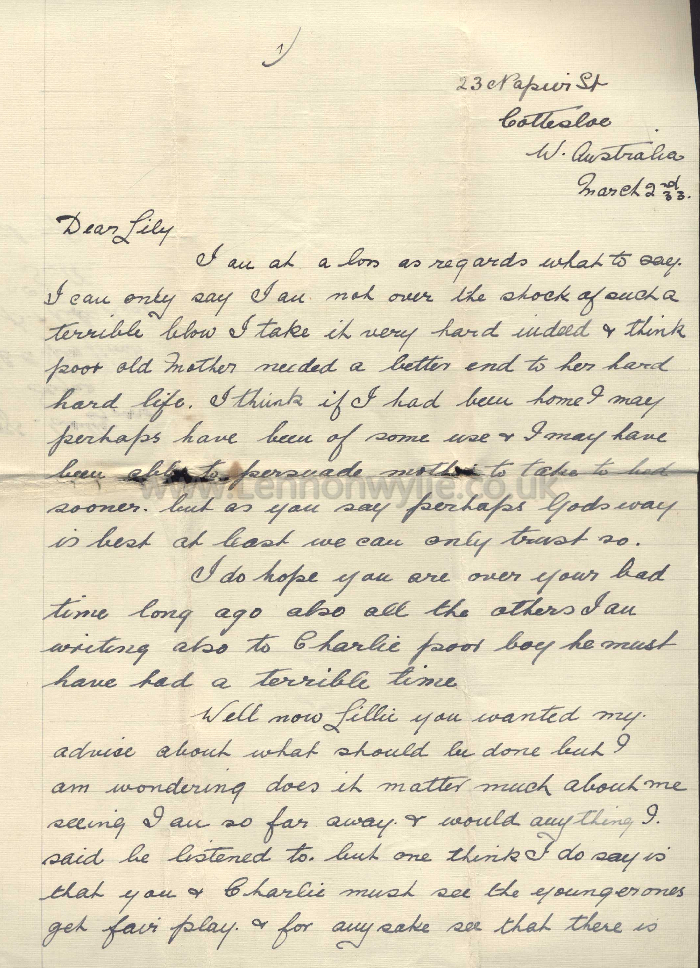 1)
23 Napier St
Cottesloe
W. Australia
March 2nd 33.
Dear Lily
I au at a loss as regards what to say.
I can only say I au not over the shock of such a
terrible blow I take it very hard indeed & think
poor old Mother needed a better end to her hard
hard life. I think if I had been home I may
perhaps have been of some use & I may have
been able to persuade mother to take to bed
www.Lennonwylie.co.uk
sooner. but as you say perhaps Gods way
is best at least we can only trust so.
I do hope you are over your bad
time long ago also all the others I au
writing also to Charlie poor boy he must
have had a terrible time
Well now Lillie you wanted my.
advice about what should be done but I
am wondering does it matter much about me
seeing I au so far away. & would anything I.
said be listened to. but one think I do say is
that you & Charlie must see the younger ones
get fair play. & for any sake see that there is